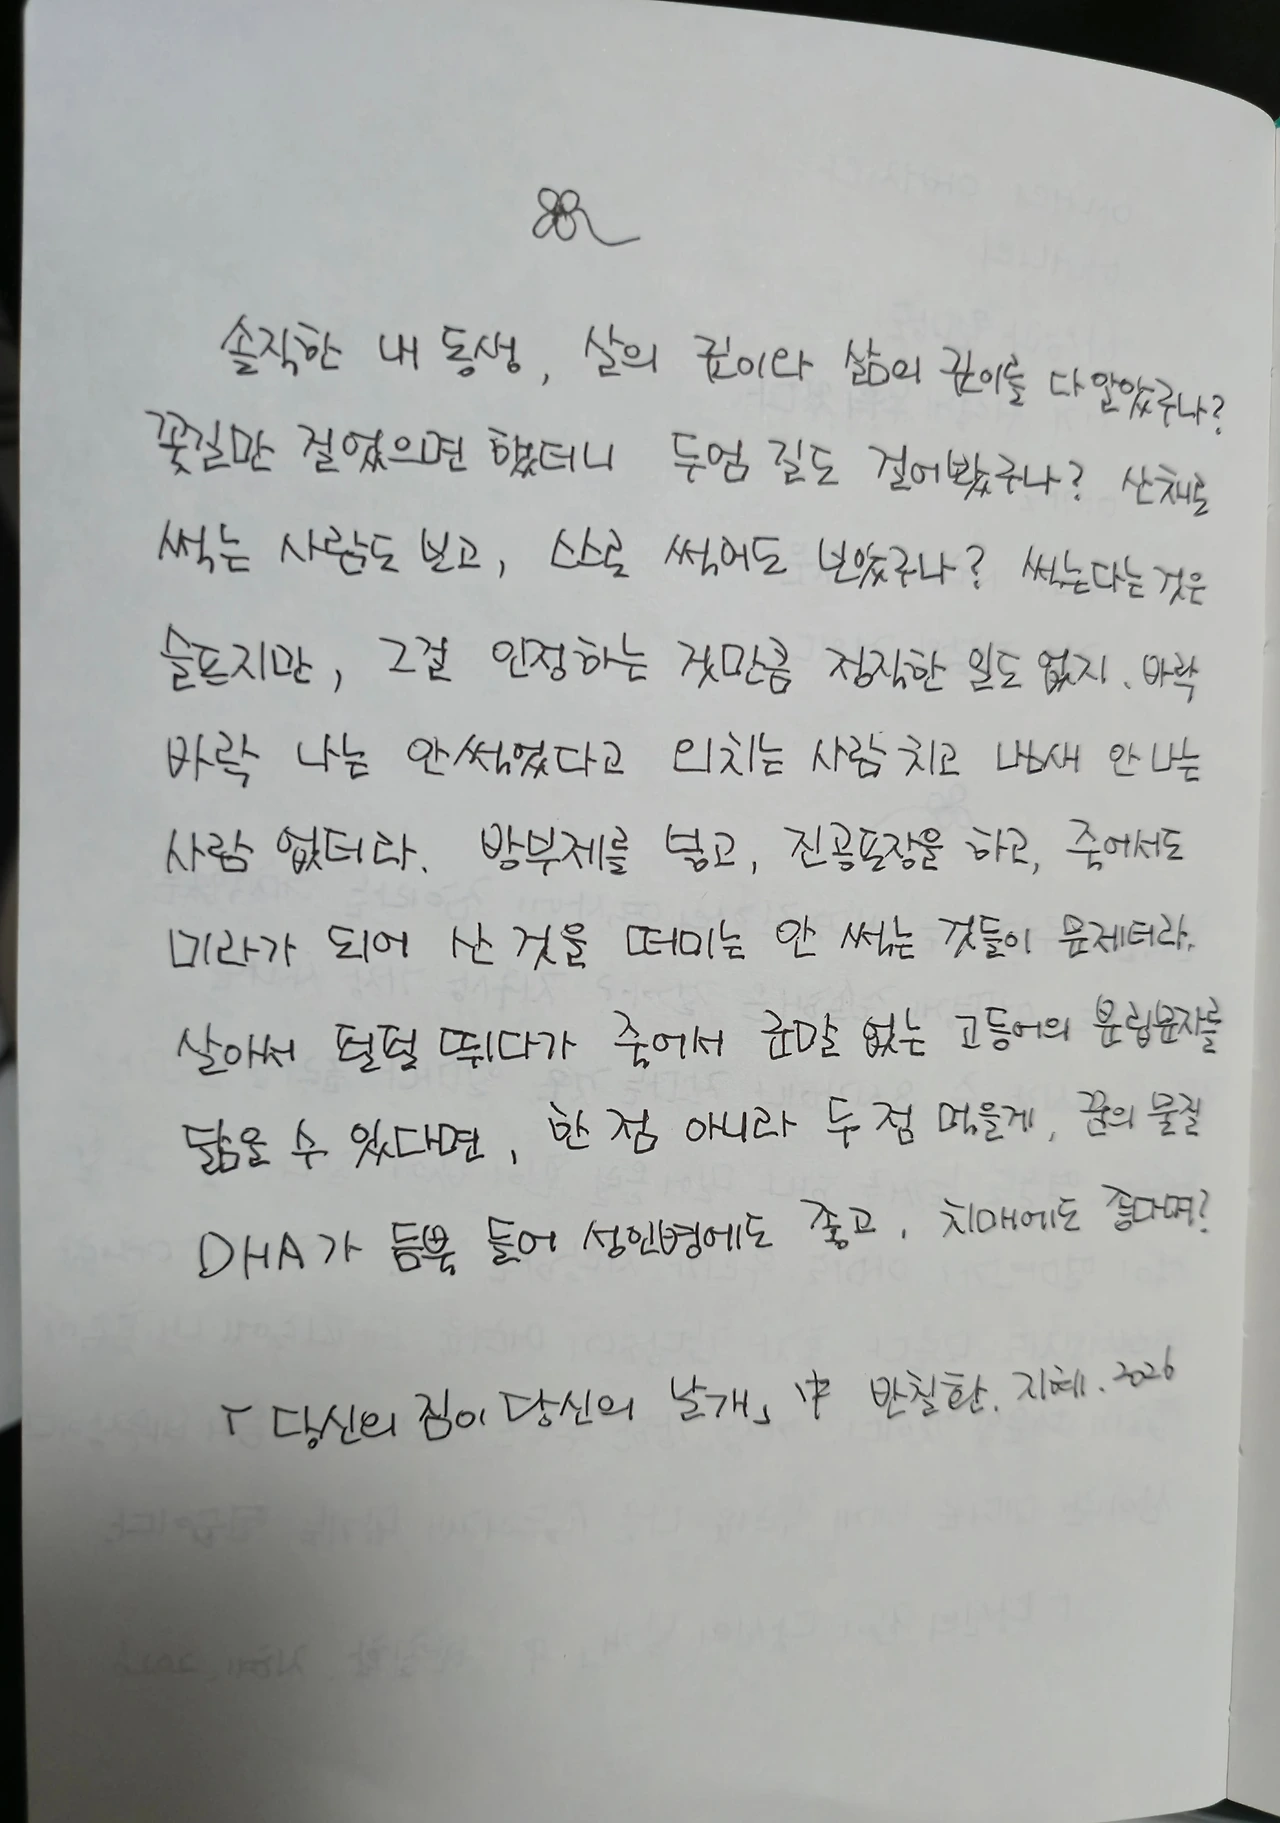 솔직한 내 동생, 살의 깊이와 삶의 깊이를 다 알았구나?
꽃길만 걸었으면 했더니 두엄 길도 걸어봤구나? 산채로
썩는 사람도 보고, 스스로 썩어도 보았구나? 썩는다는 것은
슬프지만, 그걸 인정하는 것만큼 정직한 일도 없지. 바락
바락 나는 안 썩었다고 외치는 사람 치고 냄새 안 나는
사람 없더라. 방부제를 넣고, 진공포장을 하고, 죽어서도
미라가 되어 산 것을 떠미는 안 썩는 것들이 문제더라.
살아서 펄펄 뛰다가 죽어서 군말 없는 고등어의 분립문자를
닮을 수 있다면, 한 점 아니라 두 점 먹을게, 꿈의 물질
DHA가 듬뿍 들어 성인병에도 좋고, 치매에도 좋다며?
「당신의 짐이 당신의 날개」 中 반칠환. 지혜. 2026